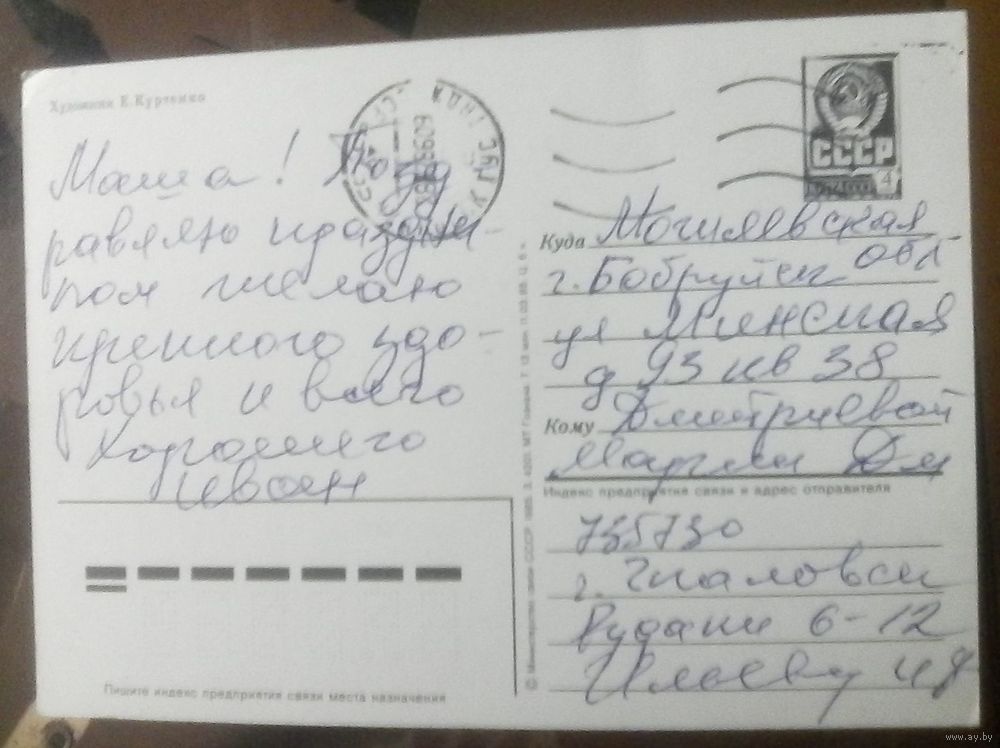 Художник Е. Куртенко
Маша! Позд
равляю праздни-
ком желаю
крепкого здо-
ровья и всего
хорошего
иван
СССР
4
Куда Могилевская
обл
г. Бобруйск
ул Минская
д 93 кв 38
Кому Дмитриевой
Марии Дм
Индекс предприятия связи и адрес отправителя
735730
г. Чкаловск
Рудаки 6-12
Пишите индекс предприятия связи места назначения
www.ay.by